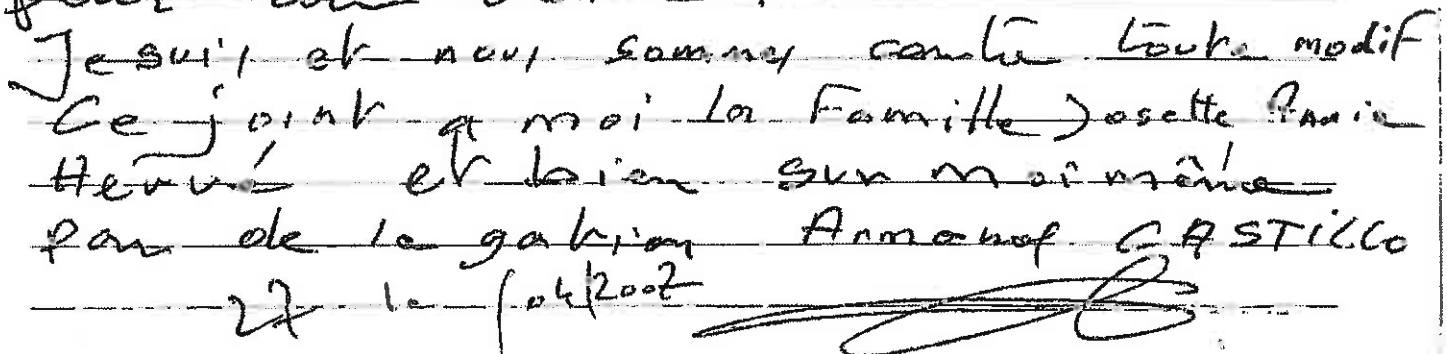 Je suis, et nous sommes contre toute modif
Ce joint a moi la Famille Josette
Hervé et bien sur moi même
par de le gation Armand CASTILLO
27 le